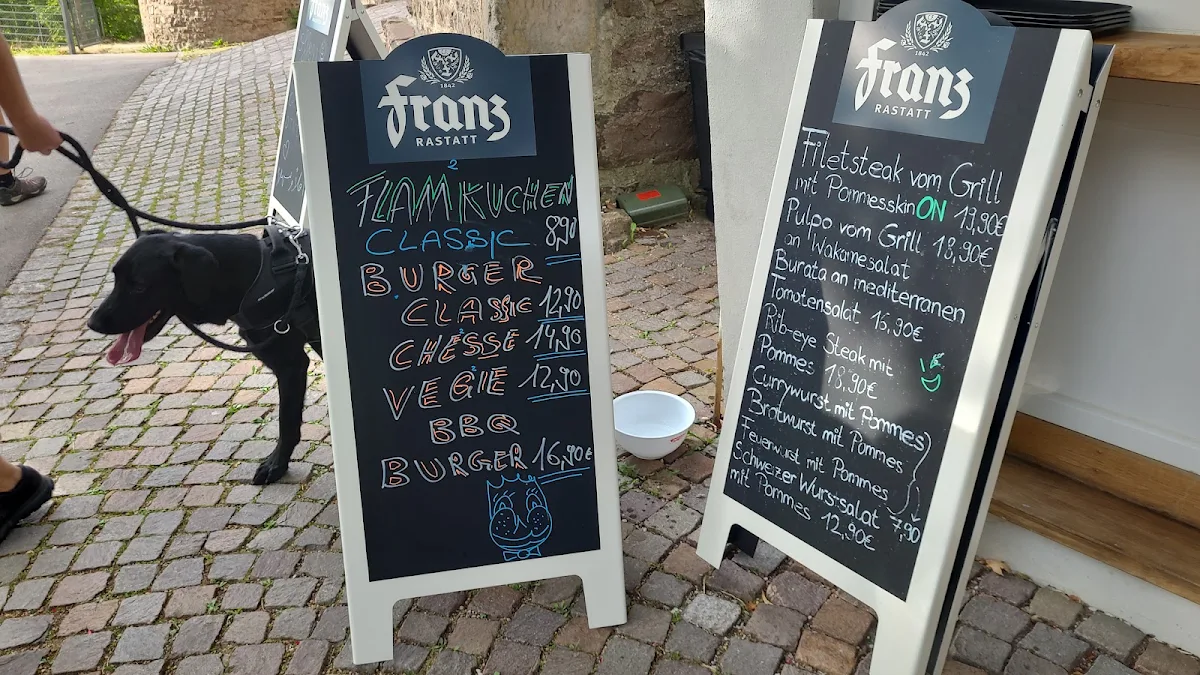 1842
Franz
RASTATT
FLAMKUCHEN
CLASSIC 8,90
BURGER
CLASSIC 12,90
CHESSE 14,90
VEGIE 12,90
BBQ
BURGER 16,90€
1842
Franz
RASTATT
Filetsteak vom Grill
mit PommesskinON 19,90€
Pulpo vom Grill 18,90€
an Wakamesalat
Burata an mediterranen
Tomatensalat 16,90€
Rib-eye Steak mit
Pommes 18,90€
Currywurst mit Pommes
Bratwurst mit Pommes
Feuerwurst mit Pommes
Schweizer Wurst-salat 7,90
mit Pommes 12,90€